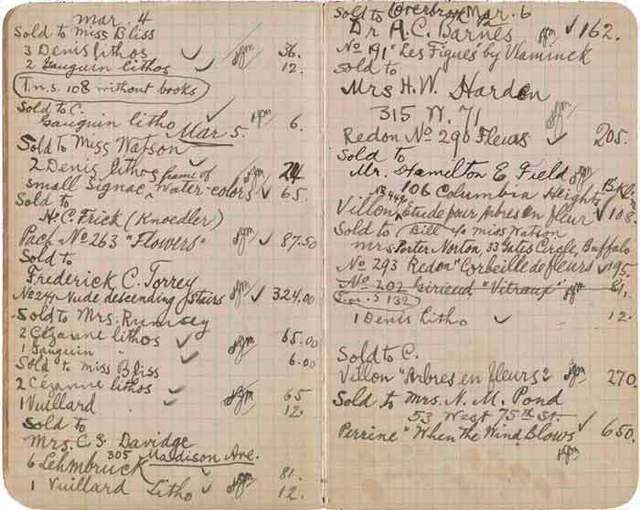 Mar. 4
Sold to Miss Bliss
3 Denis lithos ✓ 36.
2 Gauguin lithos ✓ 12.
T.n.s. 108 without books
Sold to C.
Gauguin litho ✓ 6.
Mar 5.
Sold to Miss Watson
2 Denis lithos frame of 24
Small Signac water-colors ✓ 65
Sold to
H.C. Frick (Knoedler)
Pach No 263 "Flowers" ✓ 87.50
Sold to
Frederick C. Torrey
No 241 Nude descending stairs ✓ 324.00
Sold to Mrs. Rumsey
2 Cezanne lithos ✓ 65.00
1 Gauguin " 6.00
Sold to Miss Bliss
2 Cezanne lithos ✓ 65
1 Vuillard ✓ 12.
Sold to
Mrs. C. S. Davidge
305 Maddison Ave.
6 Lehmbruck ✓ 81.
1 Vuillard Litho ✓ 12.
Sold to Overbrook Pa Mar. 6
Dr A.C. Barnes ✓ 162.
No 191 "Les Figues" by Vlaminck
Sold to
Mrs H.W. Harden
315 W. 71
Redon No 290 Fleurs ✓ 205.
Sold to
Mr. Hamilton E Field
106 Columbia Heights Bkln
Villon No 449 Etude pour Arbres en fleur ✓ 108.
Sold to (Bill c/o Miss Watson
Mrs. Porter Norton, 33 Gates Circle, Buffalo
No 293 Redon "Corbeille de fleurs ✓ 195.
No 202 Girieud, "Vitraux" 81.
T.n.s 132
1 Denis Litho ✓ 12.
Sold to C.
Villon "Arbres en fleurs" 270
Sold to Mrs. N. M. Pond
53 West 75th St.
Perrine "When the Wind Blows ✓ 650.